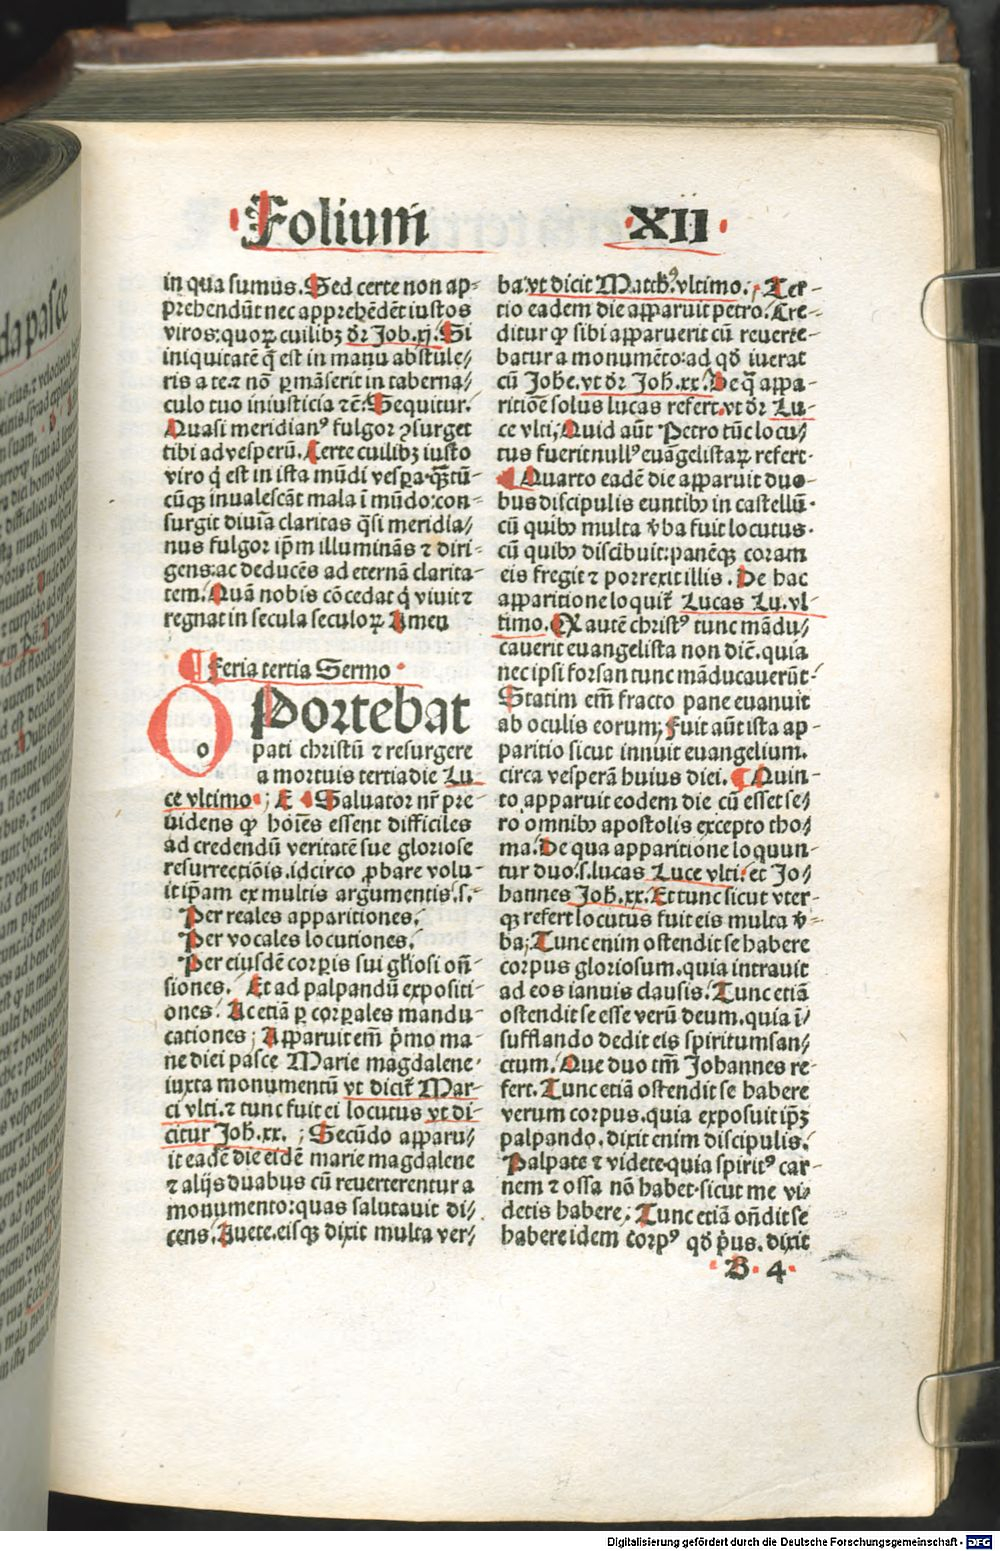 Folium XII
in qua sumus. Sed certe non ap-
prehendūt nec appreħēdēt iustos
viros: quoꝝ cuilibꝫ dr̄ Job.xj. Si
iniquitatē q̄ est in manu abstule/
ris a te. ⁊ nō ꝑmāserit in taberna/
culo tuo iniusticia ⁊c̄. Sequitur.
Quasi meridianꝰ fulgor ꝯsurget
tibi ad vesperū. Certe cuilibꝫ iusto
viro q̇ est in ista mūdi vesꝑa. qͣtū-
cūqꝫ inualescāt mala ī mūdo: con-
surgit diuīa claritas q̄si meridia/
nus fulgor ip̄m illuminās ⁊ diri-
gens: ac deducēs ad eternā clarita-
tem. Quā nobis cōcedat q̇ viuit ⁊
regnat in secula seculoꝝ Amen
¶ Feria tertia Sermo
OPortebat
pati christū ⁊ resurgere
a mortuis tertia die Lu
ce vltimo; E Saluator nr̄ pre
uidens ꝙ hoīes essent difficiles
ad credendū veritatē sue gloriose
resurrectiōis. idcirco ꝓbare volu-
it ip̄am ex multis argumentis .s.
Per reales apparitiones.
Per vocales locutiones.
Per eiusdē corꝑis sui gl̄iosi oñ-
siones. Et ad palpandū expositi-
ones. Ac etiā ꝑ corꝑales mandu-
cationes; Apparuit em̄ p̄mo ma-
ne diei pasce Marie magdalene.
iuxta monumentū vt dicit̄ Mar-
ci vlti. ⁊ tunc fuit ei locutus vt di-
citur Joh.xx. ; Secūdo apparu/
it eadē die eidē marie magdalene
⁊ alijs duabus cū reuerterentur a
monumento: quas salutauit di-
cens. Auete. eisqꝫ dixit multa ver/
ba. vt dicit Matthꝰ. vltimo. Ter-
tio eadem die apparuit petro. Cre-
ditur ꝙ sibi apparuerit cū reuerte-
batur a monumēto: ad qd̄ iuerat
cū Johe. vt dr̄ Joh.xx. De q̄ appa-
ritiōe solus lucas refert. vt dr̄ Lu-
ce vlti; Quid aūt Petro tūc locu/
tus fuerit nullꝰ euāgelistaꝝ refert.
Quarto eadē die apparuit duo-
bus discipulis euntibꝰ in castellū.
cū quibꝰ multa v̄ba fuit locutus.
cū quibꝰ discibuit: panēqꝫ coram
eis fregit ⁊ porrexit illis. De hac
apparitione loquit̄ Lucas Lu. vl-
timo. Qꝫ autē christꝰ tunc mādu/
cauerit euangelista non diē. quia
nec ipsi forsan tunc māducauerūt.
Statim em̄ fracto pane euanuit
ab oculis eorum; Fuit aūt ista ap-
paritio sicut innuit euangelium.
circa vesperā huius diei. Quin-
to apparuit eodem die cū esset se/
ro omnibꝰ apostolis excepto tho/
ma. De qua apparitione loquun-
tur duo .s. lucas Luce vlti. et Jo/
hannes Joh.xx. Et tunc sicut vter-
qꝫ refert locutus fuit eis multa v̄-
ba; Tunc enim ostendit se habere
corpus gloriosum. quia intrauit
ad eos ianuis clausis. Tunc etiā
ostendit se esse verū deum. quia ī/
sufflando dedit eis spiritum san/
ctum. Que duo tm̄ Johannes re-
fert. Tunc etiā ostendit se habere
verum corpus. quia exposuit ip̄ꝫ
palpando. dixit enim discipulis.
Palpate ⁊ videte. quia spiritꝰ car-
nem ⁊ ossa nō habet. sicut me vi/
detis habere; Tunc etiā oñdit se
habere idem corpꝰ qd̄ p̄us. dixit
B 4
Digitalisierung gefördert durch die Deutsche Forschungsgemeinschaft - DFG